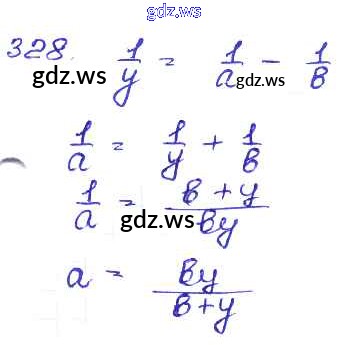 gdz.ws
328. 1/y = 1/a - 1/в
gdz.ws gdz.ws
1/a = 1/y + 1/в
1/a = в + y / вy
gdz.ws
a = вy / в+y